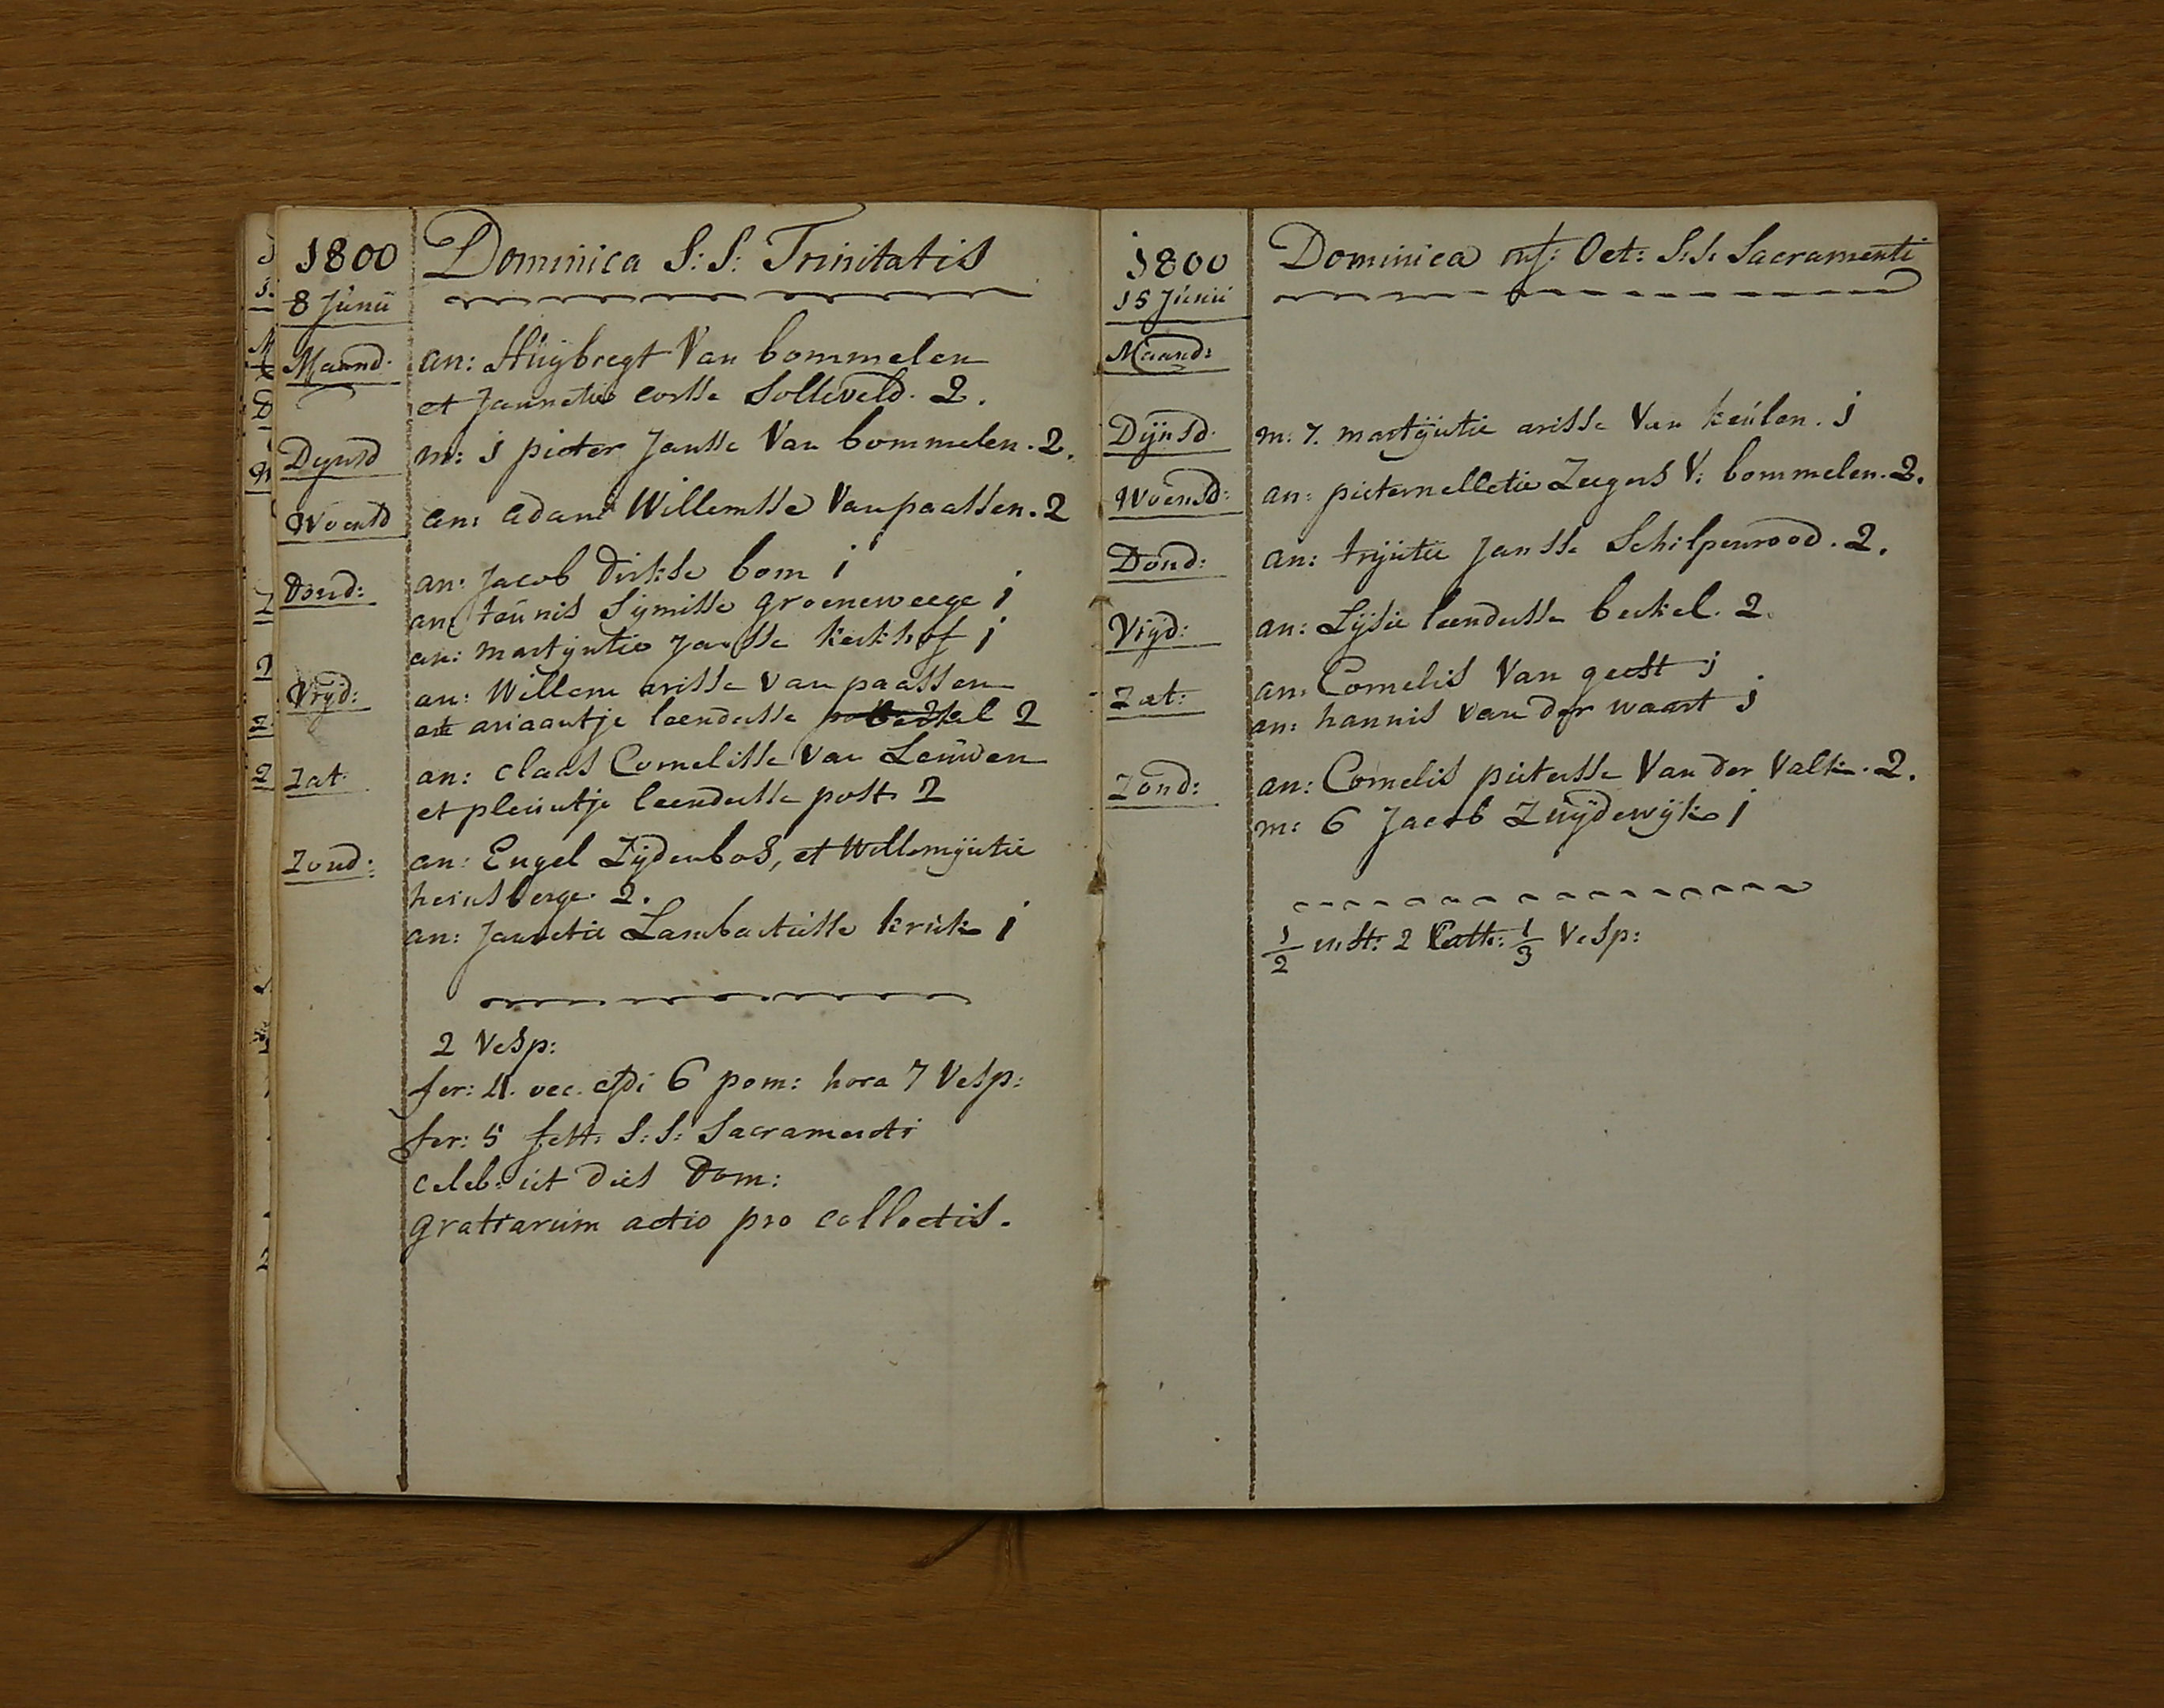 1800 Dominica S: S: Trinitatis
8 Junii
Maand: an: Huijbregt Van bommelen
et Jannetie corsse Solleveld. 2.
Dynsd m: j pieter Jansse Van bommelen. 2.
Woensd an: adam Willemsse Van paassen. 2
Dond: an: Jacob dirkse bom j
an: teunis Sijmisse groeneweege j
an: martijntie Jansse kerkhof j
Vrijd: an: Willem arisse van paassen
et ariaantje leendertse beckel 2
Zat: an: claas Cornelisse van Leeuwen
et pleuntje leendertse post 2
Zond: an: Engel Zijdenbos, et Willemijntie
heinsberge 2.
an: Jannetie Lambertusse kruk j
2 Vesp:
fer: 4. vec. 6 pom: hora 7 Vesp:
fer: 5 fest: S: S: Sacramenti
celeb: ut dies Dom:
gratiarum actio pro collectis.
1800 Dominica inf: Oct: S: S: Sacramenti
15 Junii
Maand:
Dijnsd: m: 7. martijntie arisse Van keulen. j
Woensd: an: pieternelletie Zeegers V: bommelen. 2.
Dond: an: trijntie Jansse Schilpenrood. 2.
Vrijd: an: Lijsie leendertse beckel. 2.
Zat: an: Cornelis Van geest j
an: hannis van der waart j
Zond: an: Cornelis pieterse Van der Valk. 2.
m: 6 Jacob Zuijdewijk j
1/2 inst: 2 Cath: 1/3 Vesp: